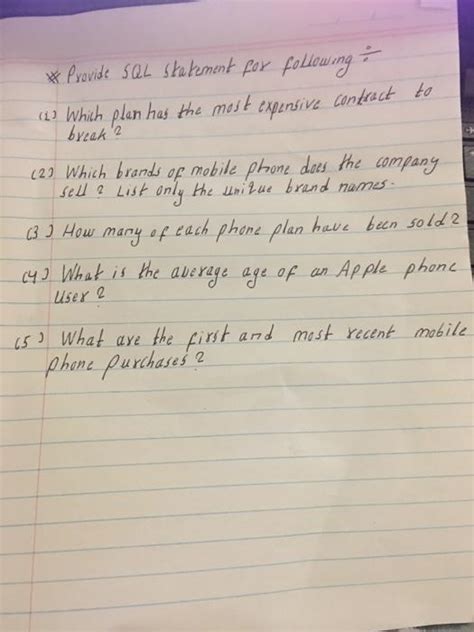 * Provide SQL Statement for following ÷
(1) Which plan has the most expensive contract to
break?
(2) Which brands of mobile phone does the company
sell? List only the unique brand names.
(3) How many of each phone plan have been sold?
(4) What is the average age of an Apple phone
user?
(5) What are the first and most recent mobile
phone purchases?